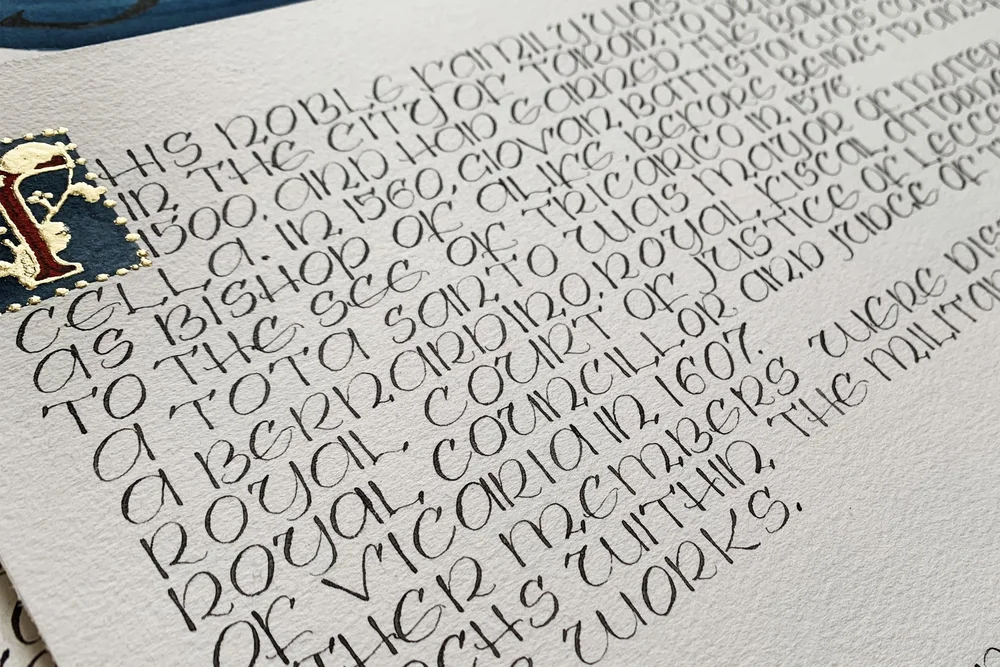 THIS NOBLE FAMILY WAS
IN THE CITY OF TARANTO
1500. AND HAD EARNED THE
CELLA. IN 1560, GIOVAN BATTISTA WAS
AS BISHOP OF ALIFE, BEFORE BEING TRANS
TO THE SEE OF TRICARICO IN 1576.
A TOTA SANTO WAS MAYOR OF MATER
A BERNARDINO, ROYAL FISCAL ATTORNE
ROYAL COURT OF JUSTICE OF LECCE
ROYAL COUNCILLOR AND JUDGE OF
OF VICARIA IN 1607.
THER MEMBERS WERE DIS
CHS WITHIN THE MILITAR
WORKS.